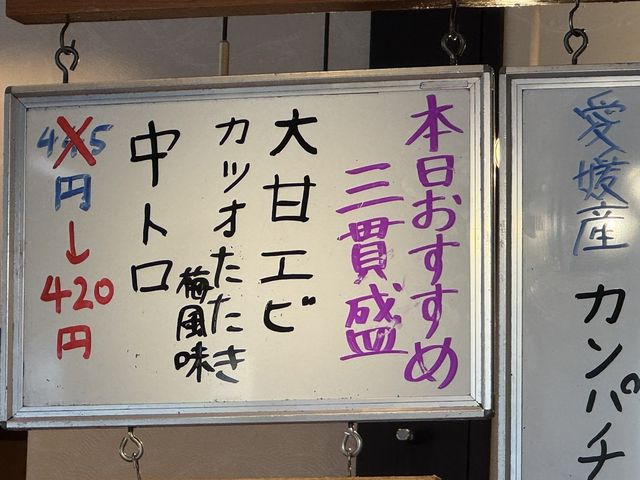 愛媛産カンパチ
本日おすすめ
三貫盛
大甘エビ
カツオたたき
梅風味
中トロ
円
↓
420
円